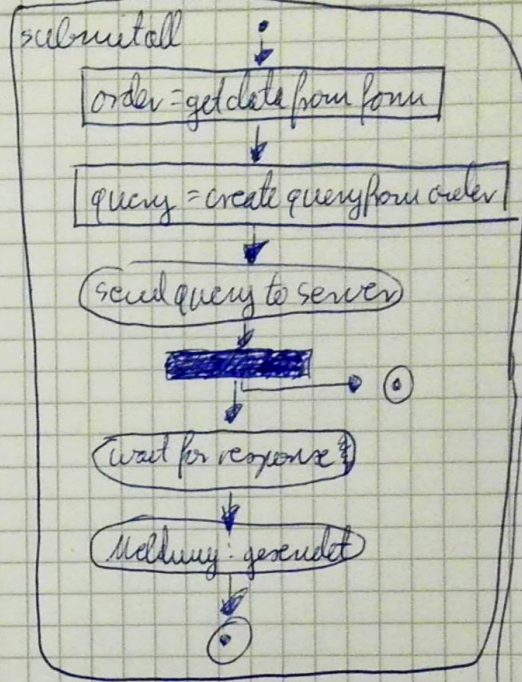 submitall
order = get data from form
query = create query from order
send query to server
wait for response
Meldung: gesendet